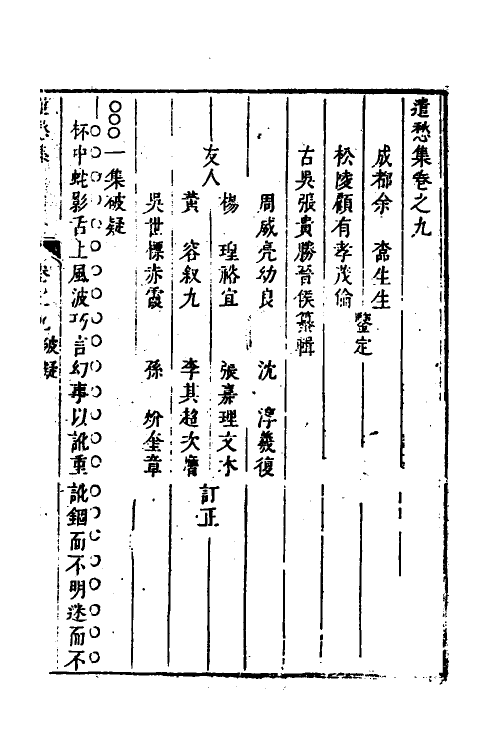 遣愁集卷之九
成都余 㵂生生
松陵顧有孝茂倫
鑒定
古吳張貴勝晉侯纂輯
周威亮幼良 沈 淳義復
楊 瑆裕宜 張嘉理文木
友人
黃 容叙九 李其超次磨
訂正
吳世標赤霞 孫 枌奎章
一集破疑
杯中蛇影舌上風波巧言幻事以訛重訛錮而不明迷而不
遣愁集 卷之九 破疑